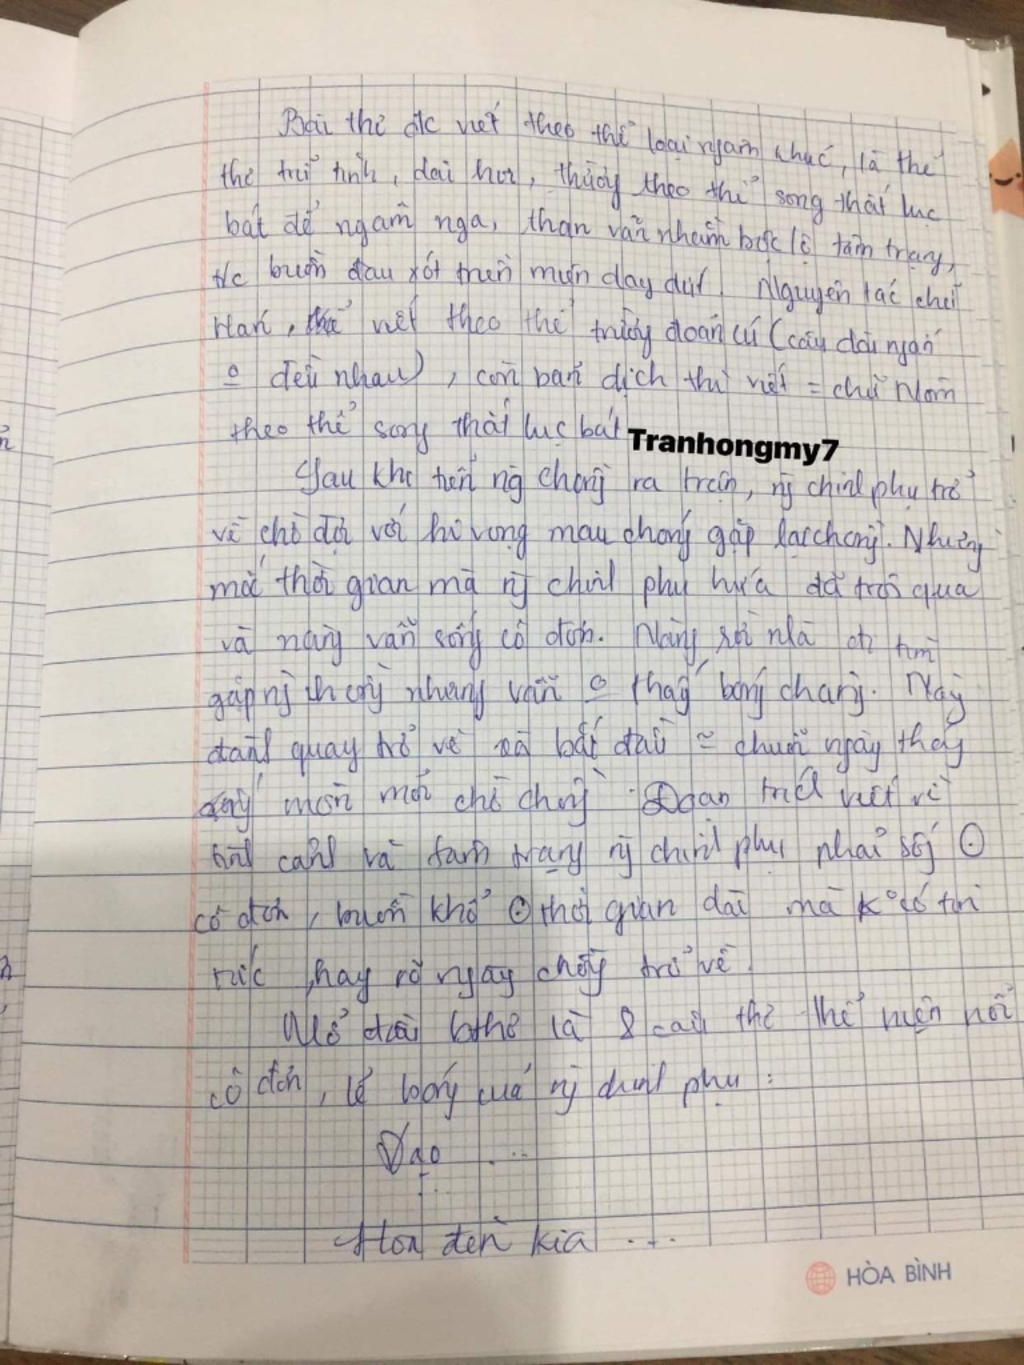 Bài thơ đc viết theo thể loại ngâm khúc, là thể
thơ trữ tình, dài hơi, thường theo thể song thất lục
bát để ngâm nga, than vãn nhằm bộc lộ tâm trạng,
buồn đau xót triền miên day dứt. Nguyên tác chữ
Hán, viết theo thể trường đoản cú (câu dài ngắn
o đều nhau), còn bản dịch thì viết = chữ Nôm
theo thể song thất lục bát
Tranhongmy7
Sau khi tiễn ng chồng ra trận, ng chinh phụ trở
về chờ đợi với hi vọng mau chóng gặp lại chồng. Nhưng
thời gian mà ng chinh phụ hứa đã trôi qua
và nàng vẫn sống cô đơn. Nàng rời nhà đi tìm
gặp ng chồng nhưng vẫn o thấy bóng chàng. Nàng
đành quay trở về và bắt đầu = chuỗi ngày tháng
mòn mỏi chờ chồng. Đoạn trích viết về
tình cảnh và tâm trạng ng chinh phụ phải sống ⊙
cô đơn, buồn khổ ⊙ thời gian dài mà k° có tin
tức, hay rõ ngày chồng trở về.
Mở đầu bthơ là 8 câu thơ thể hiện nỗi
cô đơn, lẻ bóng của ng chinh phụ:
Dạo ...
...
Hoa đèn kia ...
HÒA BÌNH